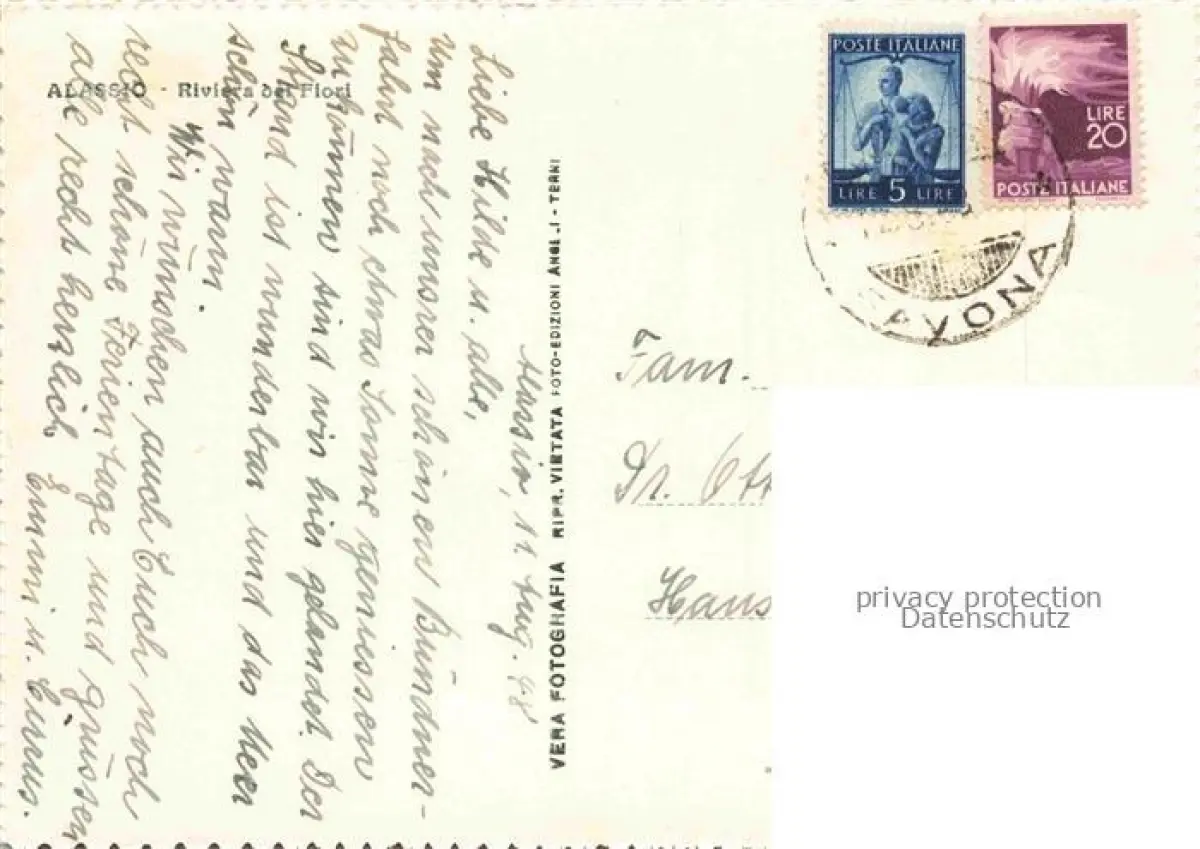 ALASSIO - Riviera dei Fiori
Alassio, 11. Aug. 48
Liebe Hilde u. alle,
Um nach unsrer schönen Bündner-
fahrt noch etwas Sonne geniessen
zu können sind wir hier gelandet. Der
Strand ist wunderbar und das Meer
schön warm.
Wir wünschen auch Euch noch
recht schöne Ferientage und grüssen
alle recht herzlich
Emmi u.
VERA FOTOGRAFIA RIPR. VIETATA FOTO-EDIZIONI ANGELI - TERNI
POSTE ITALIANE
LIRE 5 LIRE
LIRE
20
POSTE ITALIANE
SAVONA
Fam.
Dr. Ott
Hans
privacy protection
Datenschutz